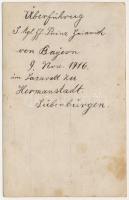 Überführung
S. Kgl. H. Prinz Heinrich
von Bayern
9. Nov. 1916.
im Lazarett zu
Hermannstadt.
Siebenbürgen.